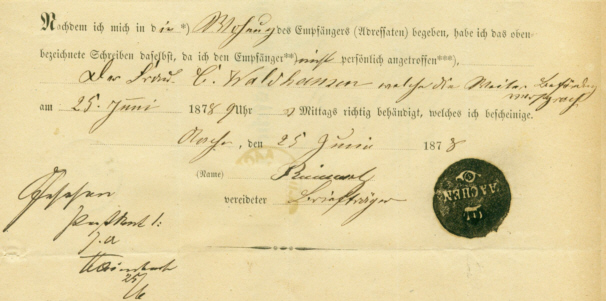 Nachdem ich mich in die *) Wohnung des Empfängers (Adressaten) begeben, habe ich das oben-
bezeichnete Schreiben daselbst, da ich den Empfänger**) nicht persönlich angetroffen***),
Der Frau C. Waldhausen welche die Weiter Beförderung
versprach
am 25. Juni 1878 9 Uhr Mittags richtig behändigt, welches ich bescheinige.
den 25 Juni 1878
(Name)
vereideter Briefträger
AACHEN
Gesehen
Postamt 1:
J. a
25/6